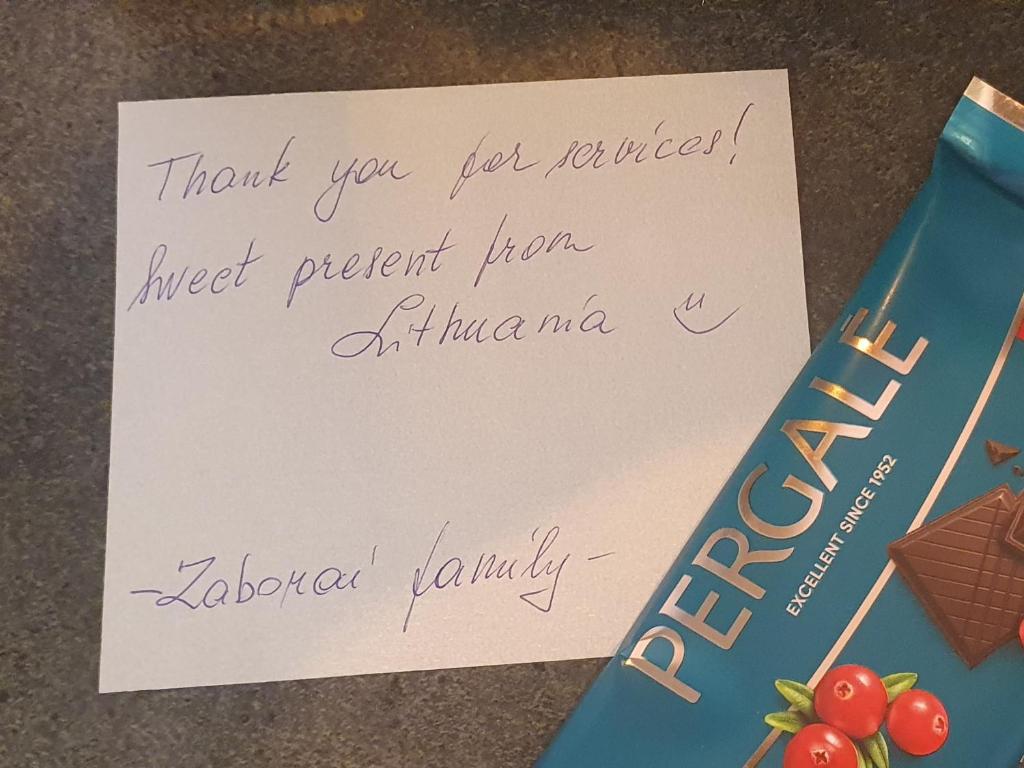 Thank you for services!
Sweet present from
Lithuania
-Zaborai family-
PERGALĖ
EXCELLENT SINCE 1952